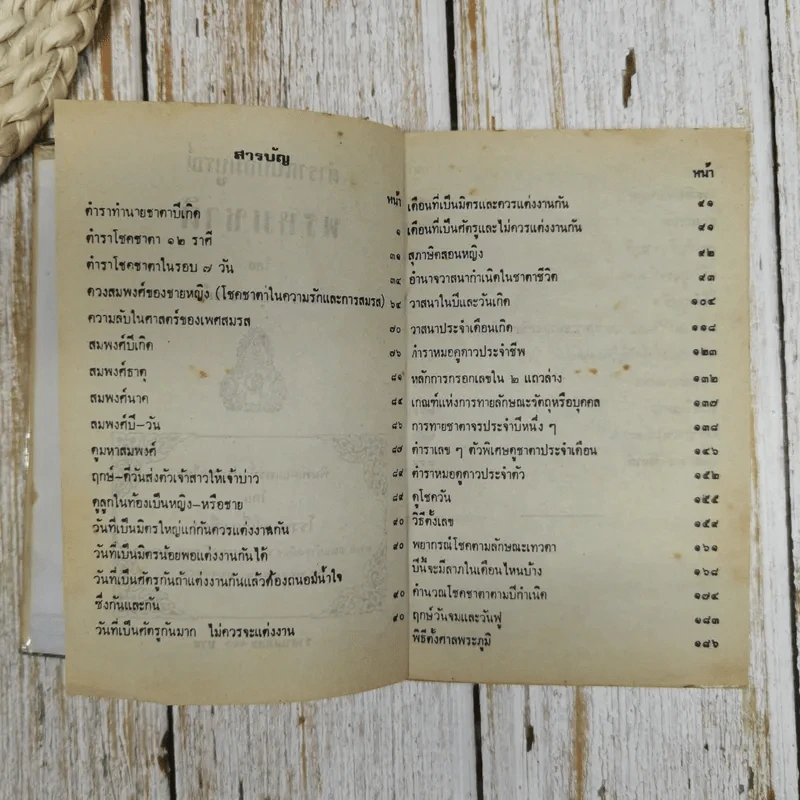 สารบัญ
หน้า
ตำราทำนายชาตาปีเกิด ๑
ตำราโชคชาตา ๑๒ ราศี ๓๑
ตำราโชคชาตาในรอบ ๗ วัน ๓๔
ดวงสมพงศ์ของชายหญิง (โชคชาตาในความรักและการสมรส) ๖๔
ความลับในศาสตร์ของเพศสมรส ๗๐
สมพงศ์ปีเกิด ๗๖
สมพงศ์ธาตุ ๘๑
สมพงศ์นาค ๘๕
สมพงศ์ปี-วัน ๘๖
ดูมหาสมพงศ์ ๘๗
ฤกษ์-ดีวันส่งตัวเจ้าสาวให้เจ้าบ่าว ๘๙
ดูลูกในท้องเป็นหญิง-หรือชาย ๘๙
วันที่เป็นมิตรใหญ่แก่กันควรแต่งงานกัน ๙๐
วันที่เป็นมิตรน้อยพอแต่งงานกันได้ ๙๐
วันที่เป็นศัตรูกันถ้าแต่งงานกันแล้วต้องถนอมน้ำใจ
ซึ่งกันและกัน ๙๐
วันที่เป็นศัตรูกันมาก ไม่ควรจะแต่งงาน ๙๐
หน้า
เดือนที่เป็นมิตรและควรแต่งงานกัน ๙๑
เดือนที่เป็นศัตรูและไม่ควรแต่งงานกัน ๙๑
สุภาษิตสอนหญิง ๙๒
อำนาจวาสนากำเนิดในชาตาชีวิต ๙๓
วาสนาในปีและวันเกิด ๑๐๔
วาสนาประจำเดือนเกิด ๑๑๘
ตำราหมอดูดาวประจำชีพ ๑๒๓
หลักการกรอกเลขใน ๒ แถวล่าง ๑๓๒
เกณฑ์แห่งการทายลักษณะวัตถุหรือบุคคล ๑๓๗
การทายชาตาจรประจำปีหนึ่ง ๆ ๑๓๘
ตำราเลข ๆ ตัวพิเศษดูชาตาประจำเดือน ๑๔๖
ตำราหมอดูดาวประจำตัว ๑๕๒
ดูโชควัน ๑๕๕
วิธีตั้งเลข ๑๕๙
พยากรณ์โชคตามลักษณะเทวดา ๑๖๑
ปีนี้จะมีลาภในเดือนไหนบ้าง ๑๖๘
คำนวณโชคชาตาตามปีกำเนิด ๑๗๔
ฤกษ์วันจมและวันฟู ๑๘๓
พิธีตั้งศาลพระภูมิ ๑๘๖